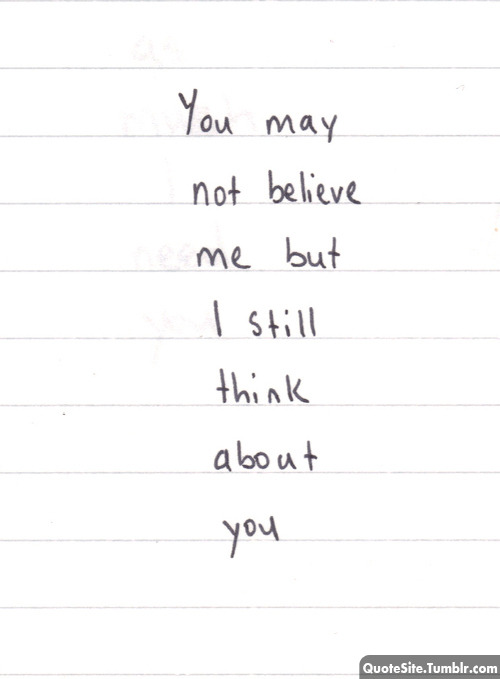 You may
not believe
me but
I still
think
about
you
QuoteSite.Tumblr.com